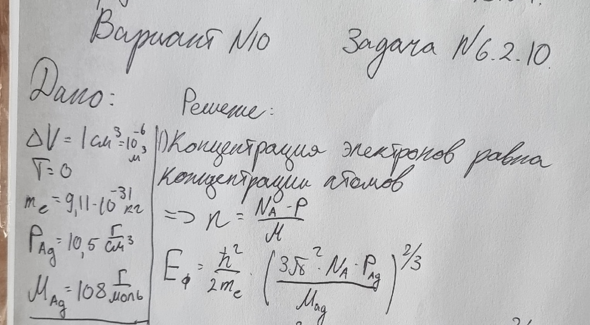 Вариант N10 Задача N6.2.10.
Дано:
ΔV = 1 см³ = 10⁻⁶ м³
T = 0
mₑ = 9,11·10⁻³¹ кг
ρ_Ag = 10,5 г/см³
M_Ag = 108 г/моль
Решение:
1) Концентрация электронов равна
концентрации атомов
=> n = (N_A · ρ)/M
E_ф = ħ²/(2mₑ) · ((3π² · N_A · ρ_Ag)/M_Ag)^(2/3)